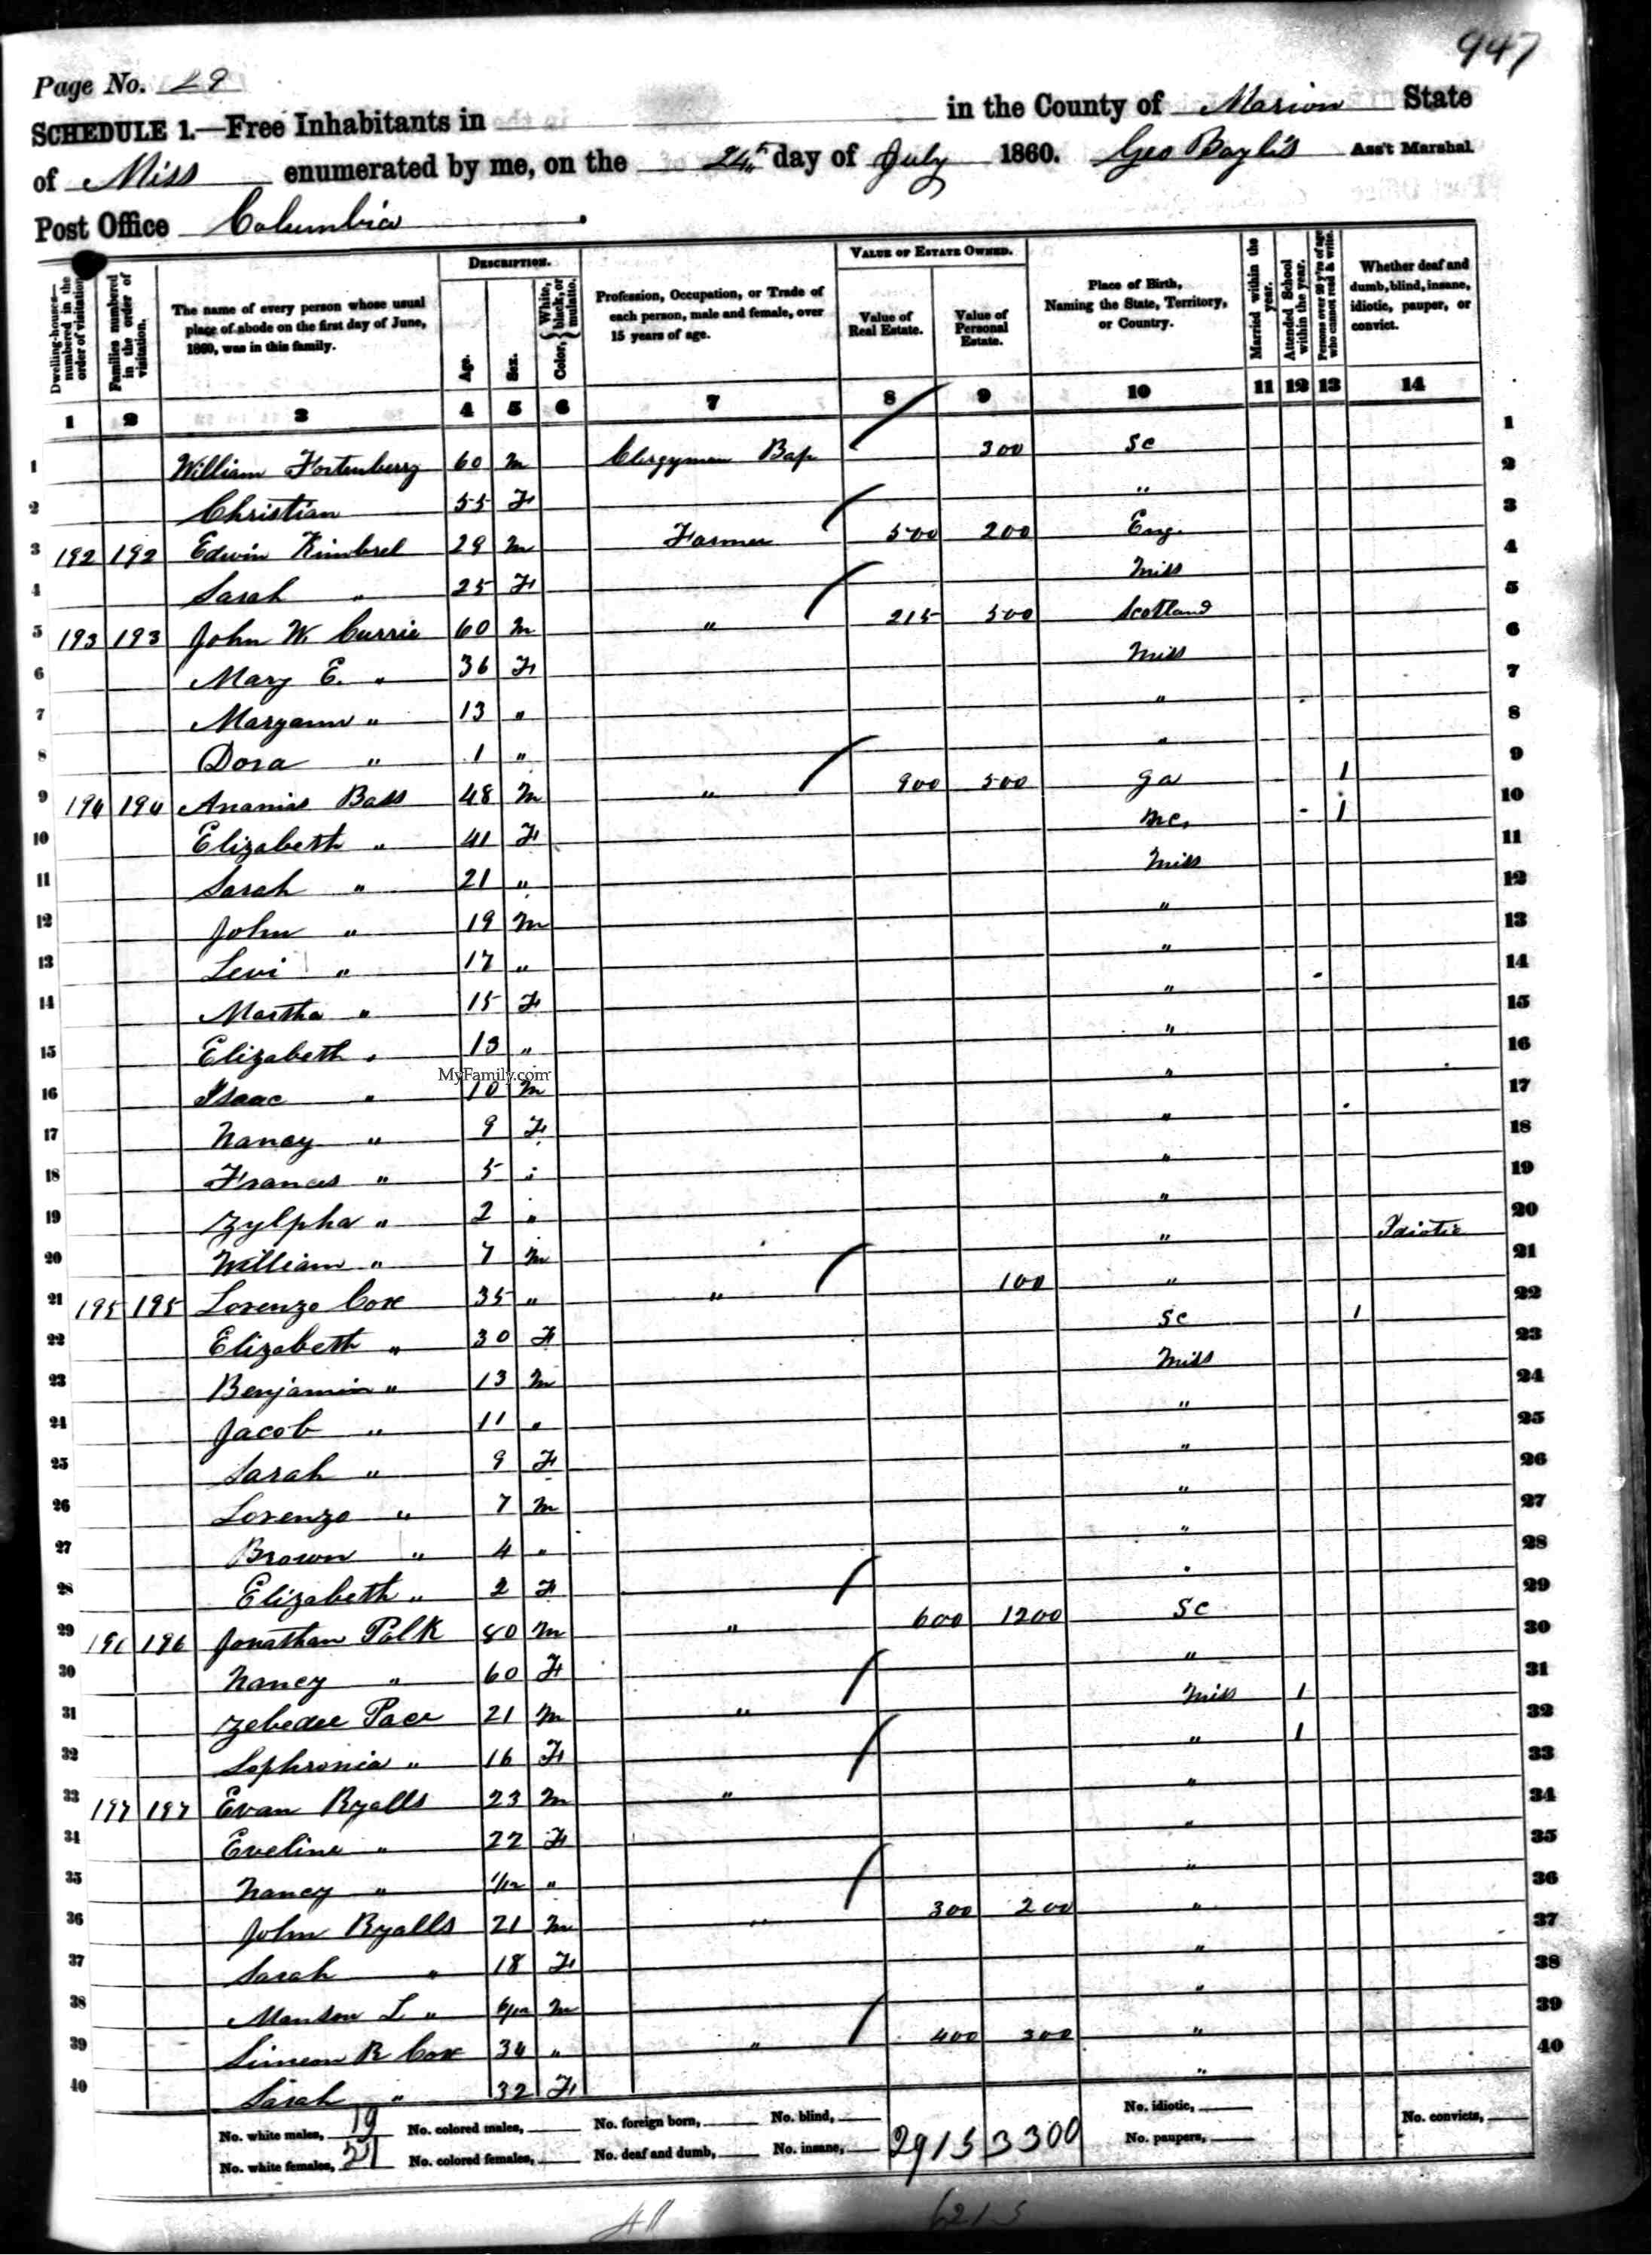 947
Page No. 29
SCHEDULE 1.—Free Inhabitants in in the County of Marion State
of Miss enumerated by me, on the 24th day of July 1860. Geo Baylis Ass't Marshal.
Post Office Columbia
Dwelling-houses—numbered in the order of visitation. Families numbered in the order of visitation. The name of every person whose usual place of abode on the first day of June, 1860, was in this family. DESCRIPTION. Age. Sex. Color, { White, black, or mulatto. Profession, Occupation, or Trade of each person, male and female, over 15 years of age. VALUE OF ESTATE OWNED. Value of Real Estate. Value of Personal Estate. Place of Birth, Naming the State, Territory, or Country. Married within the year. Attended School within the year. Persons over 20 y'rs of age who cannot read & write. Whether deaf and dumb, blind, insane, idiotic, pauper, or convict.
1 2 3 4 5 6 7 8 9 10 11 12 13 14
1 William Fortenberry 60 M Clergyman Bap 300 SC 1
2 Christian 55 F " 2
3 192 192 Edwin Kimbrel 29 M Farmer 500 200 Eng. 3
4 Sarah " 25 F Miss 4
5 193 193 John W. Currie 60 M " 215 500 Scotland 5
6 Mary E. " 36 F Miss 6
7 Maryann " 13 " " 7
8 Dora " 1 " " 8
9 194 194 Ananias Bass 48 M " 900 500 Ga 1 9
10 Elizabeth " 41 F 1 10
11 Sarah " 21 " Miss 11
12 John " 19 M " 12
13 Levi " 17 " " 13
14 Martha " 15 F " 14
15 Elizabeth " 13 " " 15
MyFamily.com
16 Isaac " 10 M " 16
17 Nancy " 9 F " 17
18 Frances " 5 " " 18
19 Zylpha " 2 " " 19
20 William " 7 M " Idiotic 20
21 195 195 Lorenzo Cox 35 " " 100 " 21
22 Elizabeth " 30 F SC 1 22
23 Benjamin " 13 M Miss 23
24 Jacob " 11 " " 24
25 Sarah " 9 F " 25
26 Lorenzo " 7 M " 26
27 Brown " 4 " " 27
28 Elizabeth " 2 F " 28
29 196 196 Jonathan Polk 80 M " 600 1200 SC 29
30 Nancy " 60 F " 30
31 Zebedee Pace 21 M " Miss 1 31
32 Sophronia " 16 F " 1 32
33 197 197 Evan Ryalls 23 M " " 33
34 Eveline " 22 F " 34
35 Nancy " 1/12 " " 35
36 John Ryalls 21 M " 300 200 " 36
37 Sarah " 18 F " 37
38 Manson L " 6/12 M " 38
39 Simeon R Cox 34 " " 400 300 " 39
40 Sarah " 32 F " 40
No. white males, 19 No. colored males, No. foreign born, No. blind, 2915 3300 No. idiotic, No. convicts,
No. white females, 21 No. colored females, No. deaf and dumb, No. insane, No. paupers,
6215